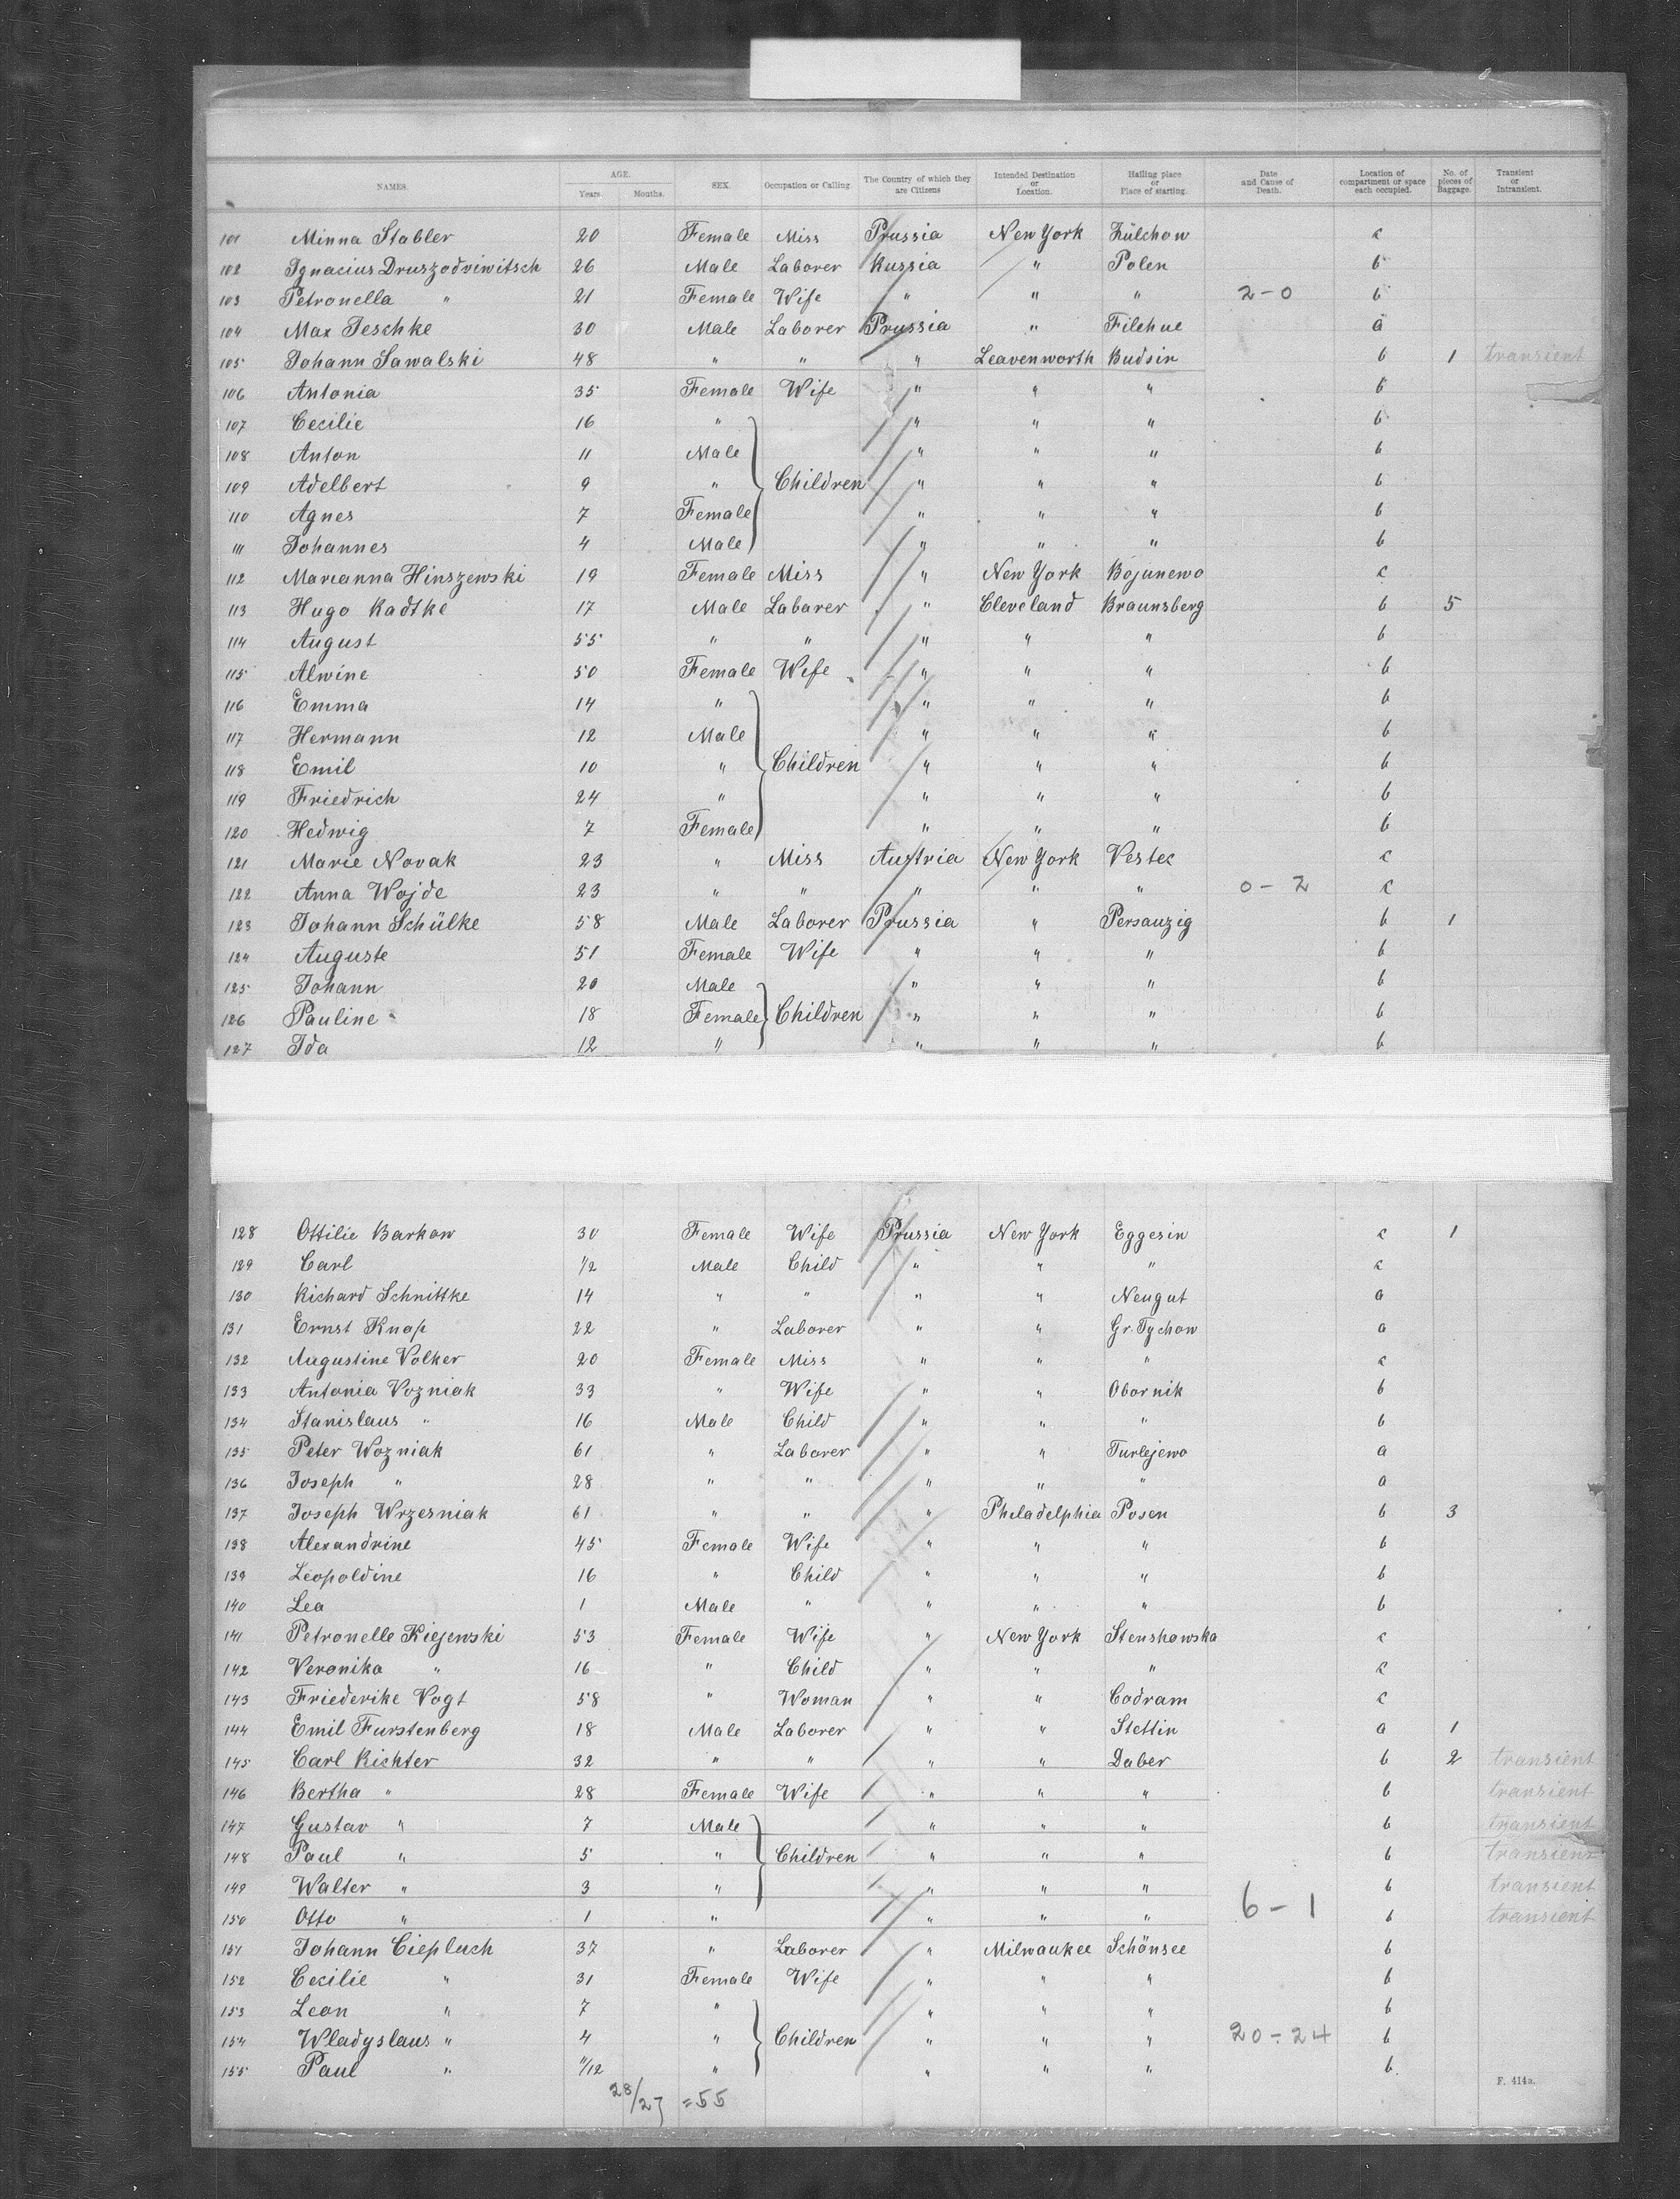 NAMES. AGE. Years Months. SEX. Occupation or Calling. The Country of which they are Citizens Intended Destination or Location. Hailing place or Place of starting. Date and Cause of Death. Location of compartment or space each occupied. No. of pieces of Baggage. Transient or Intransient.
101 Minna Stabler 20 Female Miss Prussia New York Zülchow c
102 Ignacius Druszodviwitsch 26 Male Laborer Russia " Polen b
103 Petronella " 21 Female Wife " " " 2-0 b
104 Max Jeschke 30 Male Laborer Prussia " Filehne a
105 Johann Sawalski 48 " " " Leavenworth Budsin b 1 transient
106 Antonia 35 Female Wife " " " b
107 Cecilie 16 " " " " b
108 Anton 11 Male " " " b
109 Adelbert 9 " Children " " " b
110 Agnes 7 Female " " " b
111 Johannes 4 Male " " " b
112 Marianna Hinszewski 19 Female Miss " New York Bojunewo c
113 Hugo Radtke 17 Male Labarer " Cleveland Braunsberg b 5
114 August 55 " " " " " b
115 Alwine 50 Female Wife " " " b
116 Emma 14 " " " " b
117 Hermann 12 Male " " " b
118 Emil 10 " Children " " " b
119 Friedrich 24 " " " " b
120 Hedwig 7 Female " " " b
121 Marie Novak 23 " Miss Austria New York Vestec c
122 Anna Wojde 23 " " " " " 0-2 c
123 Johann Schülke 58 Male Laborer Prussia " Persanzig b 1
124 Auguste 51 Female Wife " " " b
125 Johann 20 Male " " " b
126 Pauline 18 Female Children " " " b
127 Ida 12 " " " " b
128 Ottilie Barkow 30 Female Wife Prussia New York Eggesin c 1
129 Carl 1/2 Male Child " " " c
130 Richard Schnittke 14 " " " " Neugut a
131 Ernst Knop 22 " Laborer " " Gr. Tychow a
132 Augustine Volker 20 Female Miss " " " c
133 Antonia Vozniak 33 " Wife " " Obornik b
134 Stanislaus " 16 Male Child " " " b
135 Peter Wozniak 61 " Laborer " " Turlejewo a
136 Joseph " 28 " " " " " a
137 Joseph Wrzesniak 61 " " " Philadelphia Posen b 3
138 Alexandrine 45 Female Wife " " " b
139 Leopoldine 16 " Child " " " b
140 Lea 1 Male " " " " b
141 Petronelle Kiejewski 53 Female Wife " New York Stenshowska c
142 Veronika " 16 " Child " " " c
143 Friederike Vogt 58 " Woman " " Codram c
144 Emil Furstenberg 18 Male Laborer " " Stettin a 1
145 Carl Richter 32 " " " " Daber b 2 transient
146 Bertha " 28 Female Wife " " " b transient
147 Gustav " 7 Male " " " b transient
148 Paul " 5 " Children " " " b transient
149 Walter " 3 " " " " b transient
150 Otto " 1 " " " " 6-1 b transient
151 Johann Ciepluch 37 " Laborer " Milwaukee Schönsee b
152 Cecilie " 31 Female Wife " " " b
153 Leon " 7 " " " " b
154 Wladyslaus " 4 " Children " " " 20-24 b
155 Paul " 11/12 " " " " b
28/27 =55
F. 414a.